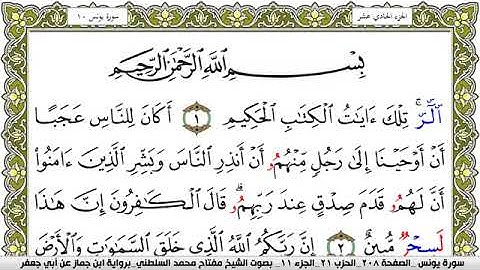 الجزء الحادي عشر
سورة يونس ١٠
بِسْمِ اللَّهِ الرَّحْمَٰنِ الرَّحِيمِ
الٓرۚ تِلْكَ ءَايَٰتُ الْكِتَٰبِ الْحَكِيمِ ١ أَكَانَ لِلنَّاسِ عَجَبًا
أَنْ أَوْحَيْنَا إِلَىٰ رَجُلٍ مِّنْهُمُۥ أَنْ أَنذِرِ النَّاسَ وَبَشِّرِ الَّذِينَ ءَامَنُوا
أَنَّ لَهُمُۥ قَدَمَ صِدْقٍ عِندَ رَبِّهِمُۥۗ قَالَ الْكَٰفِرُونَ إِنَّ هَٰذَا
لَسِحْرٌ مُّبِينٌ ٢ إِنَّ رَبَّكُمُ اللَّهُ الَّذِي خَلَقَ السَّمَٰوَٰتِ وَالْأَرْضَ
سورة يونس _الصفحة ٢٠٨_ الحزب ٢١_ الجزء ١١_ بصوت الشيخ مفتاح محمد السلطني_برواية ابن جماز عن أبي جعفر